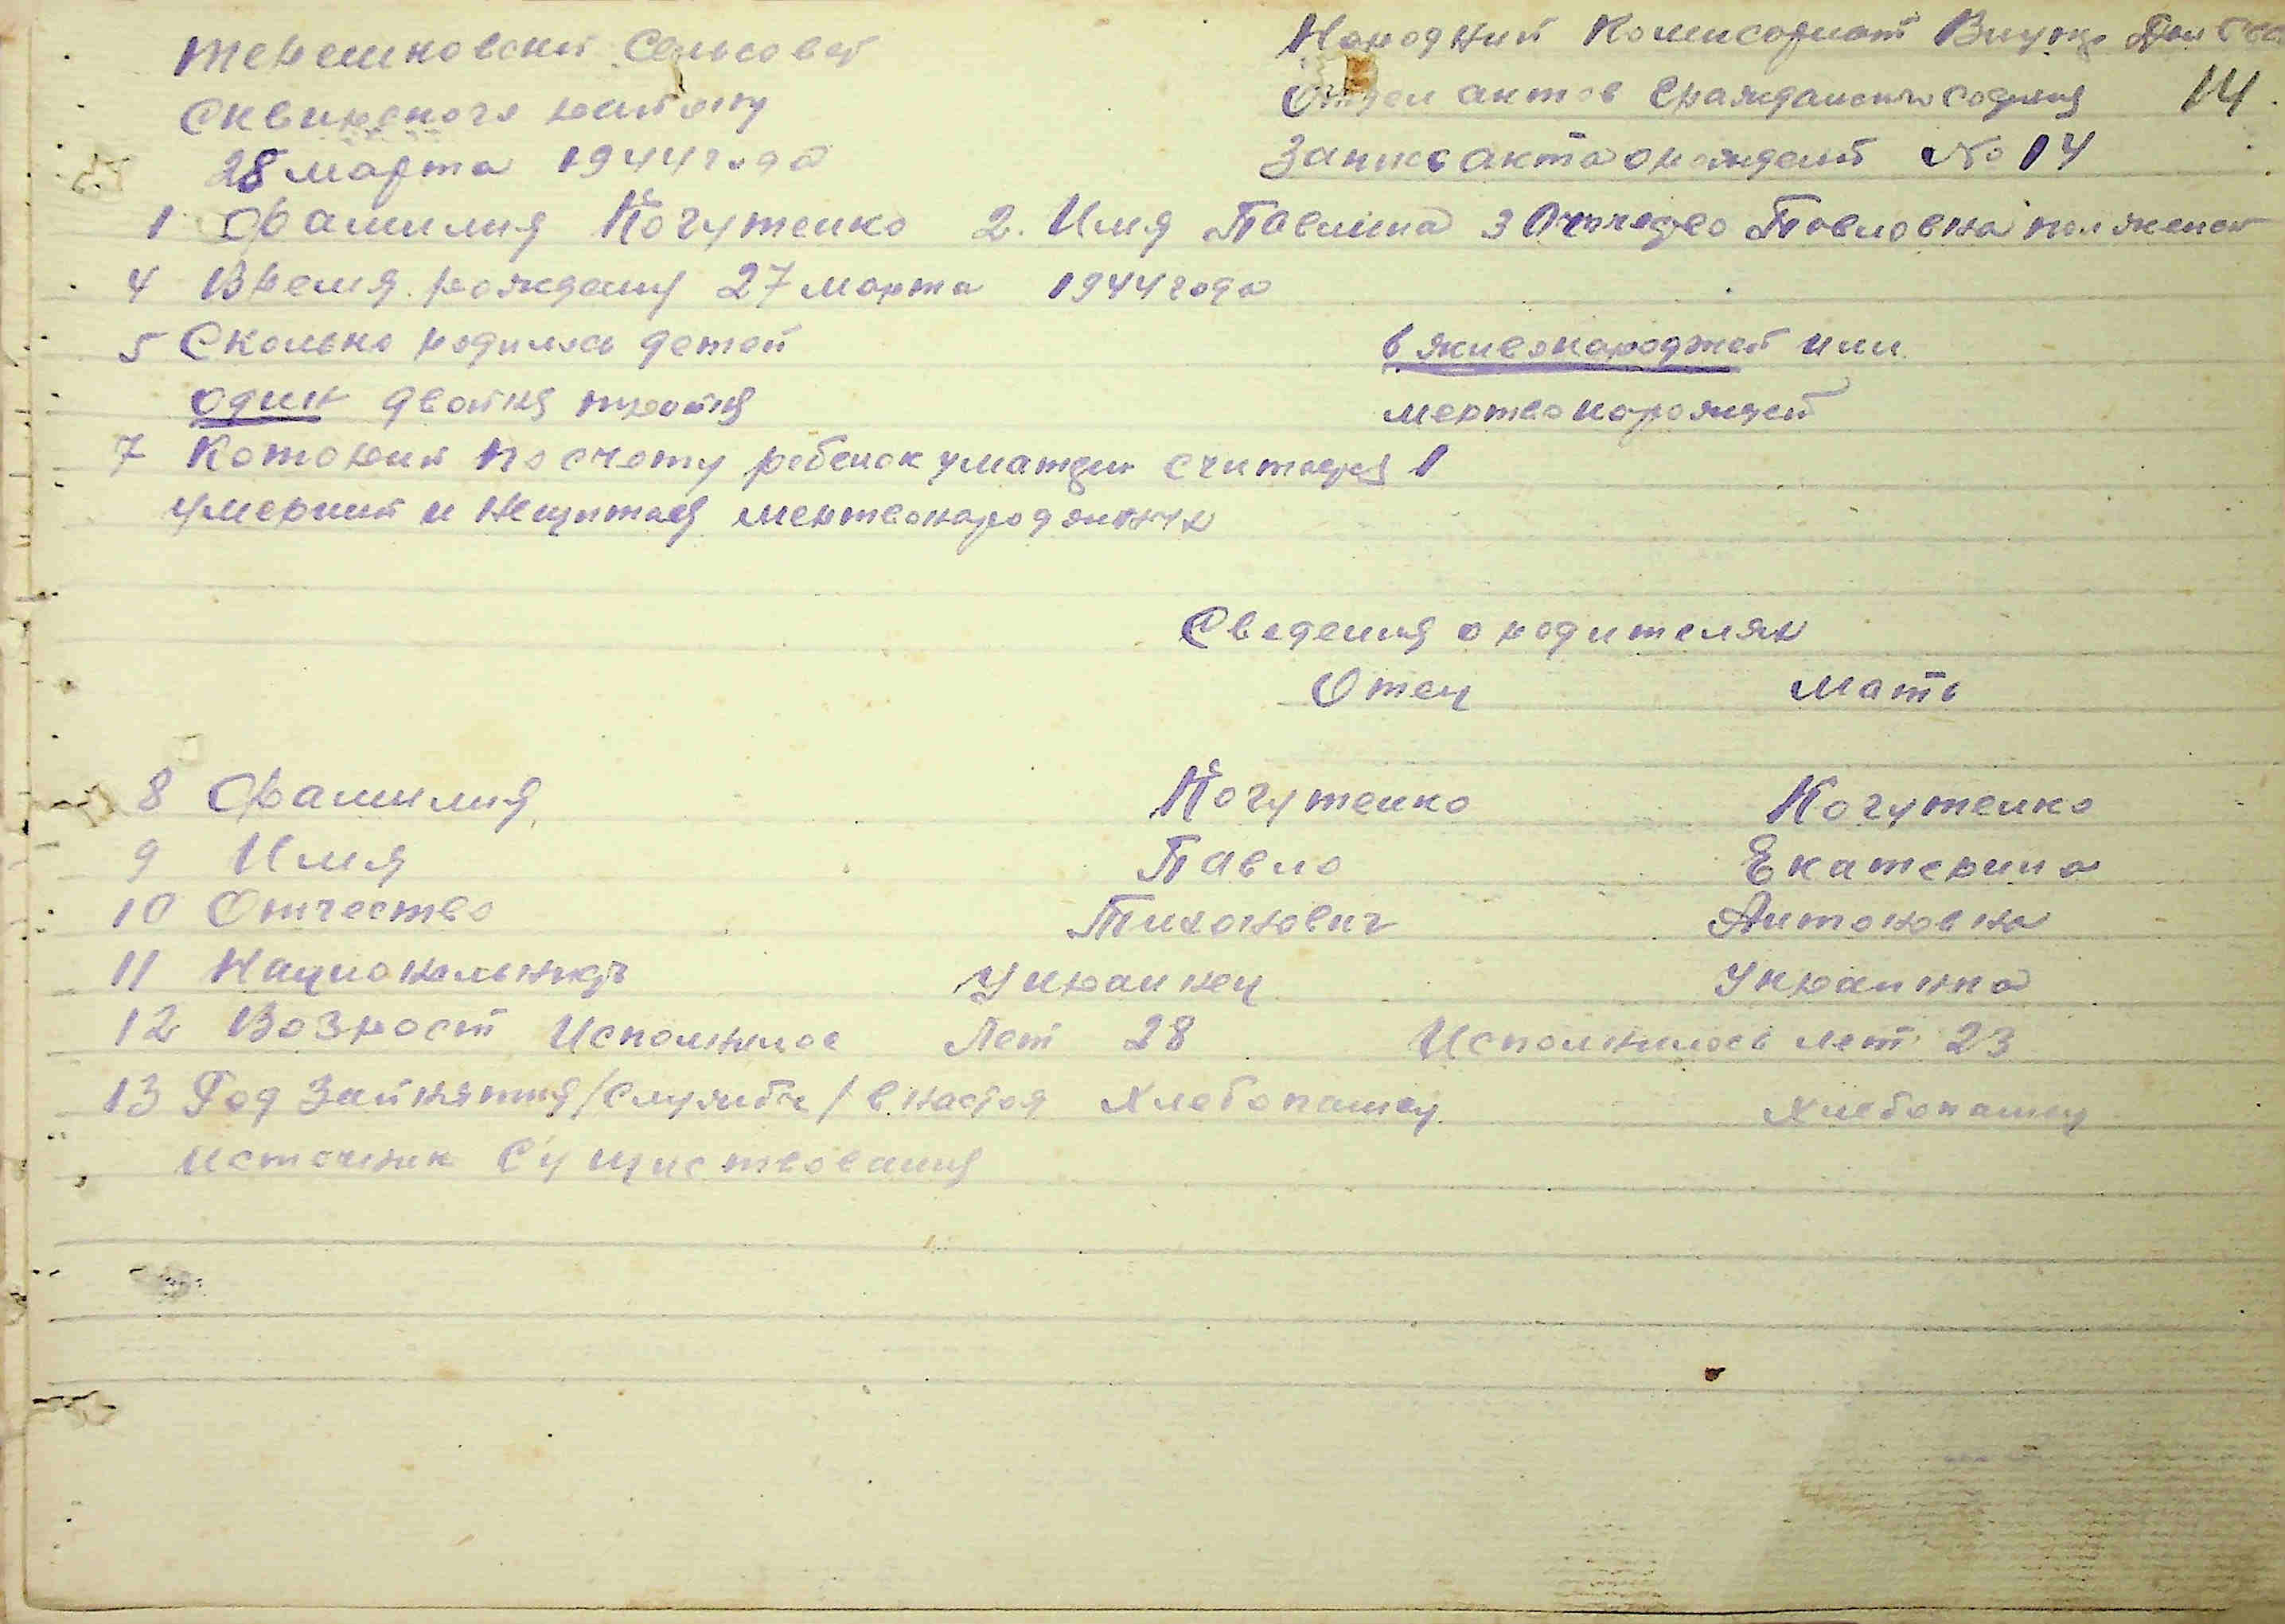 Терешковский Сельсовет
Сквирского району
28 марта 1944 года
Народний Комисориат Внутр
Отдел актов Гражданского
14
Запись акта о рождений No 14
1 Фамилия Когутенко 2. Имя Павлина 3 Отчество Повловна пол женск
4 Время рождения 27 марта 1944 года
5 Сколько родилось детей
один двойня тройня
6 живонароджей или
мертво нарожден
7 Которий по счету ребенок у матери считаеця 1
умерший и нещитая мертвонародженых
Сведения о родителях
Отец Мать
8 Фамилия Когутенко Когутенко
9 Имя Павло Екатерина
10 Отчество Тихонович Антоновна
11 Национальность Украинец Украинка
12 Возрост Исполнилос Лет 28 Исполнилось лет 23
13 Род Зайнятия /службы/ в настоя Хлебопашец Хлебопашец
источник Сущиствования